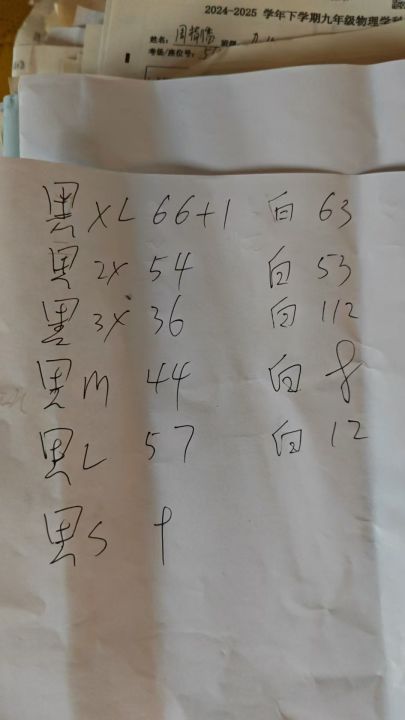 2024-2025 学年下学期九年级物理学科
姓名：
考场/座位号：
黑 XL 66+1 白 63
黑 2X 54 白 53
黑 3X 36 白 112
黑 M 44 白 8
黑 L 57 白 12
黑 S